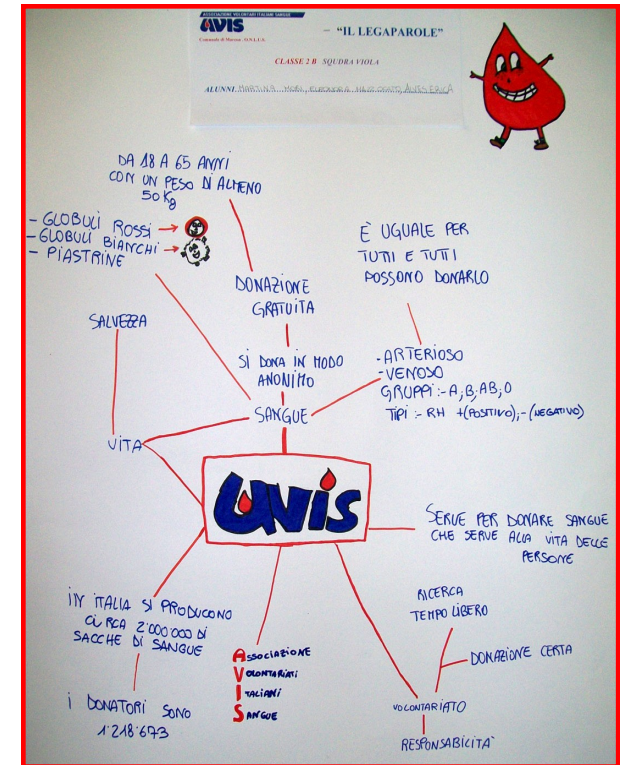 ASSOCIAZIONE VOLONTARI ITALIANI SANGUE
AVIS
– "IL LEGAPAROLE"
CLASSE 2 B SQUDRA VIOLA
ALUNNI
DA 18 A 65 ANNI
CON UN PESO DI ALMENO
50 Kg
- GLOBULI ROSSI →
- GLOBULI BIANCHI →
- PIASTRINE
È UGUALE PER
TUTTI E TUTTI
POSSONO DONARLO
DONAZIONE
GRATUITA
SALVEZZA
SI DONA IN MODO
ANONIMO
-ARTERIOSO
-VENOSO
GRUPPI:-A;B;AB;0
TIPI:-RH +(POSITIVO);-(NEGATIVO)
SANGUE
VITA
AVIS
SERVE PER DONARE SANGUE
CHE SERVE ALLA VITA DELLE
PERSONE
IN ITALIA SI PRODUCONO
CIRCA 2·000·000 DI
SACCHE DI SANGUE
I DONATORI SONO
1·218·673
ASSOCIAZIONE
VOLONTARIATI
ITALIANI
SANGUE
RICERCA
TEMPO LIBERO
DONAZIONE CERTA
VOLONTARIATO
RESPONSABILITA'